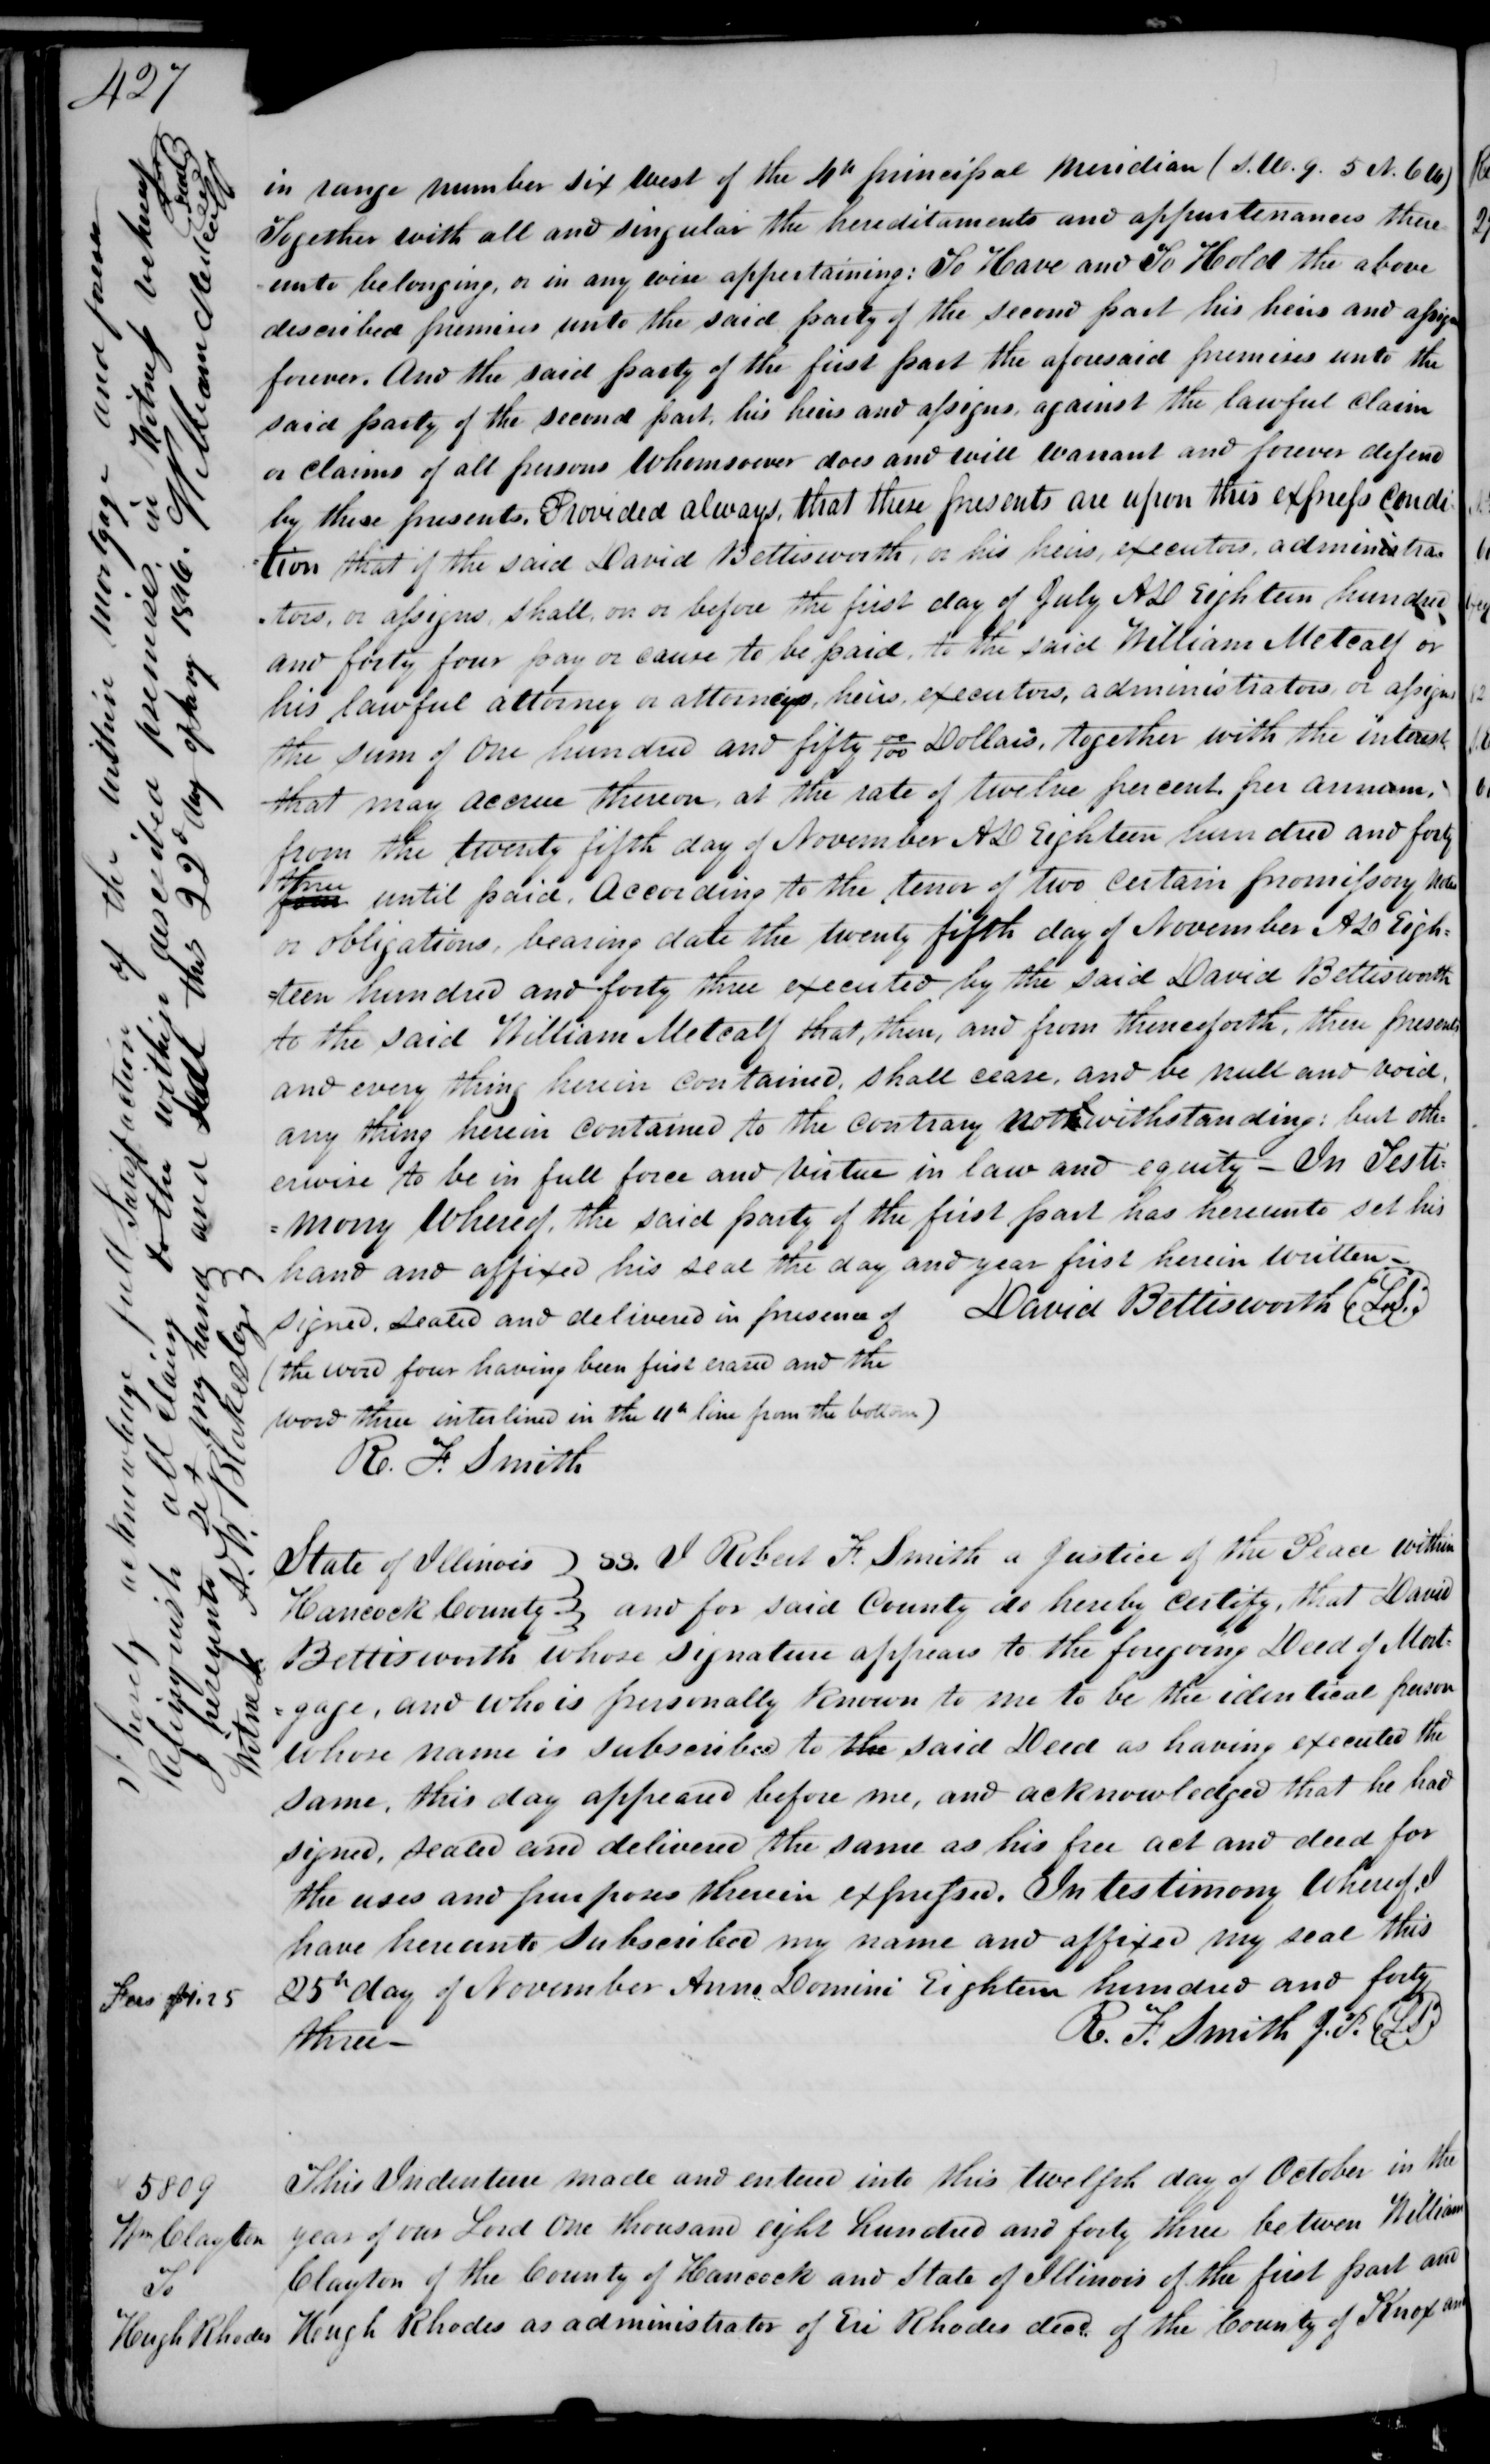 427
in range number six West of the 4th principal Meridian (S.W. 9. 5 N. 6 W)
Together with all and singular the hereditaments and appurtenances there
unto belonging, or in any wise appertaining: To Have and To Hold the above
described premises unto the said party of the second part his heirs and assigns
forever. And the said party of the first part the aforesaid premises unto the
said party of the second part, his heirs and assigns, against the lawful claim
or claims of all persons whomsoever does and will warrant and forever defend
by these presents. Provided always, that these presents are upon this express condi-
-tion that if the said David Bettisworth, or his heirs, executors, administra-
-tors, or assigns, shall, on or before the first day of July AD Eighteen hundred
and forty four pay or cause to be paid, to the said William Metcalf or
his lawful attorney or attorneys, heirs, executors, administrators, or assigns
the sum of One hundred and fifty 00/100 Dollars, together with the interest
that may accrue thereon, at the rate of twelve percent per annum,
from the twenty fifth day of November AD Eighteen hundred and forty
three
four until paid. According to the tenor of two certain promissory notes
or obligations, bearing date the twenty fifth day of November AD Eigh=
=teen hundred and forty three executed by the said David Bettisworth
to the said William Metcalf that, then, and from thenceforth, these presents
and every thing herein contained, shall cease, and be null and void,
any thing herein contained to the contrary notwithstanding: but oth=
erwise to be in full force and virtue in law and equity - In Testi=
=mony Whereof, the said party of the first part has hereunto set his
hand and affixed his seal the day and year first herein written -
signed, sealed and delivered in presence of David Bettisworth (L.S.)
(the word four having been first erased and the
word three interlined in the 11th line from the bottom)
R. F. Smith
State of Illinois } SS. I Robert F. Smith a Justice of the Peace within
Hancock County } and for said County do hereby certify, that David
Bettisworth whose signature appears to the foregoing Deed of Mort=
=gage, and who is personally known to me to be the identical person
whose name is subscribed to the said Deed as having executed the
same, this day appeared before me, and acknowledged that he had
signed, sealed and delivered the same as his free act and deed for
the uses and purposes therein expressed. In testimony Whereof, I
have hereunto Subscribed my name and affixed my seal this
Fees $1.25 25th day of November Anno Domini Eighteen hundred and forty
three - R. F. Smith J.P. (LS)
5809
Wm Clayton
To
Hugh Rhodes
This Indenture made and entered into this twelfth day of October in the
year of our Lord One thousand eight hundred and forty three between William
Clayton of the County of Hancock and State of Illinois of the first part and
Hough Rhodes as administrator of Eri Rhodes decd. of the County of Knox and
I hereby acknowledge full Satisfaction of the within mortgage and forever
Relinquish all claim to the within described premises, in Witness whereof
I hereunto set my hand and Seal this 22d day of 1846. William Metcalf Seal
Witness A. W. Blakesley